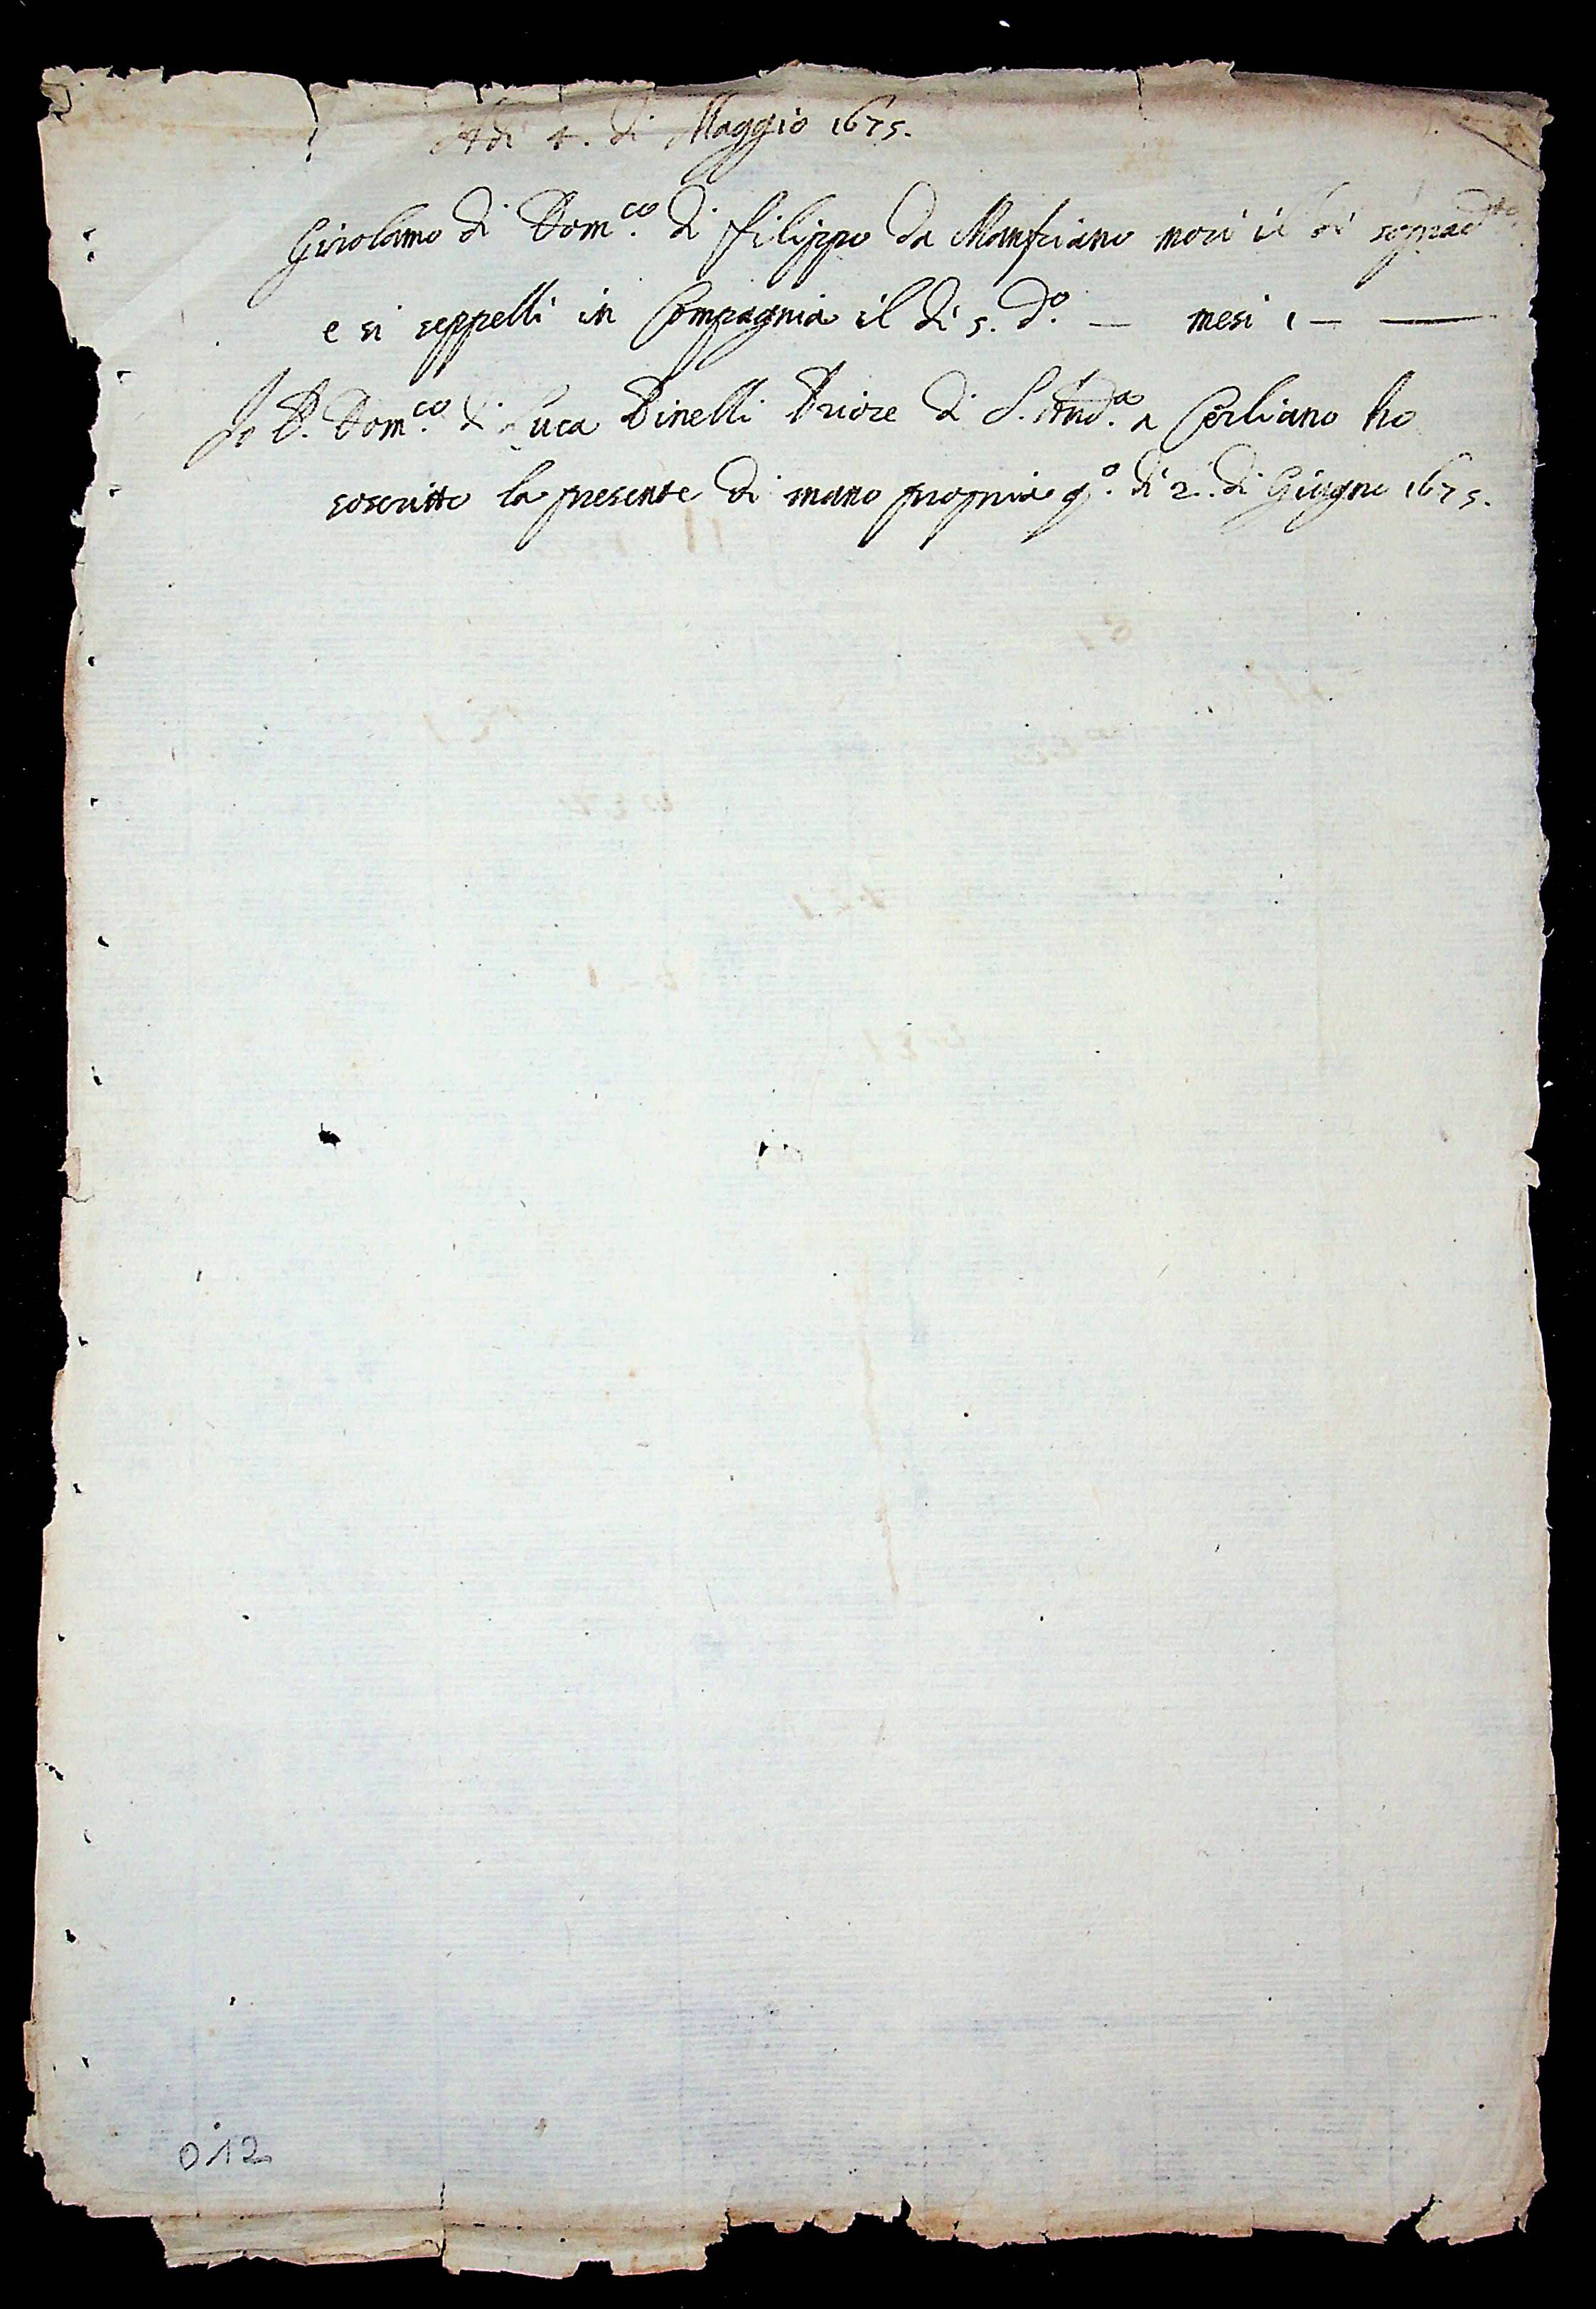 Adi 4. di Maggio 1675.
Girolamo di Dom.co di Filippo da Manfriano morì il dì sopradto
e si seppellì in Compagnia il dì 5. d.o — mesi 1 — —
Io P. Dom.co di Luca Pinelli Priore di S. And.a a Cerliano ho
soscritto la presente di mano propria q.o dì 2. di Giugno 1675.
012